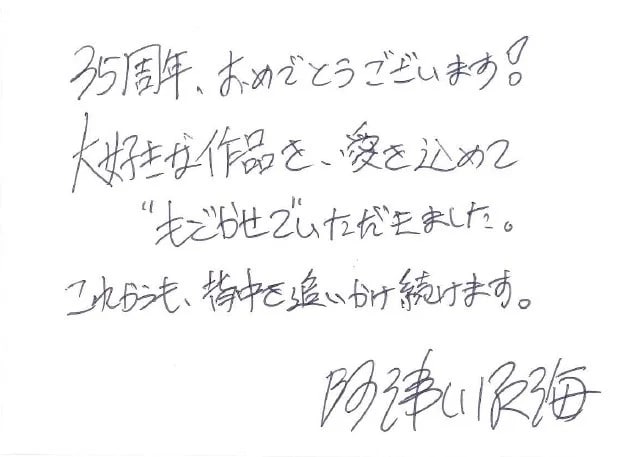 35周年、おめでとうございます!
大好きな作品を、愛を込めて
“もどかせて”いただきました。
これからも、背中を追いかけ続けます。
阿津川辰海